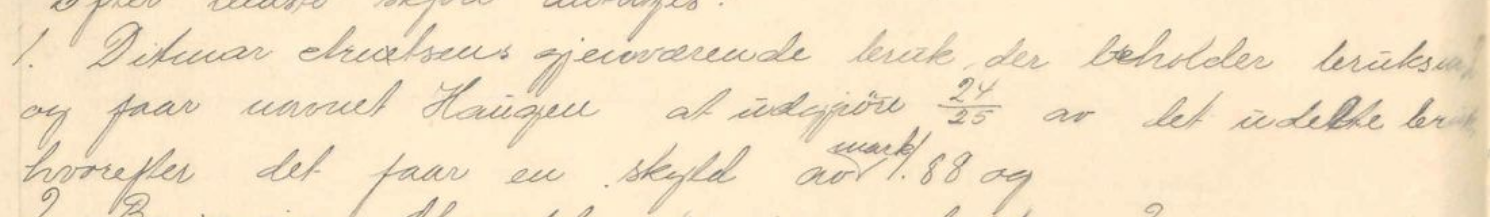 1. Ditmar Knutsens gjenværende bruk, der beholder bruksn
og faar navnet Haugen at udgjøre 24/25 av det udelte bruk,
hvorefter det faar en skyld av mark 1.88 og